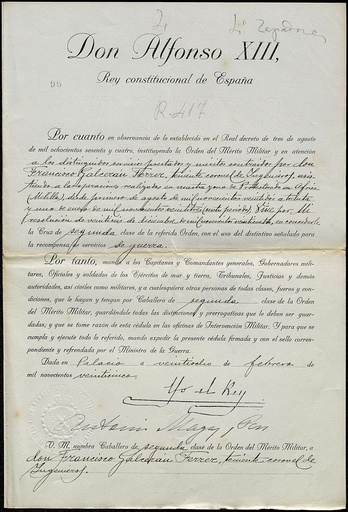 4º Zapadores
Don Alfonso XIII,
Rey constitucional de España
96
R-417
Por cuanto en observancia de lo establecido en el Real decreto de tres de agosto
de mil ochocientos sesenta y cuatro, instituyendo la Orden del Mérito Militar y en atención
a los distinguidos servicios prestados y méritos contraídos por don
Francisco Galcerán Ferrer, teniente coronel de Ingenieros, asis
tiendo a las operaciones realizadas en nuestra zona de Protectorado en Africa
(Melilla), desde primero de agosto de mil novecientos veintidos a treinta
y uno de enero de mil novecientos veintitres (sexto periodo). Vine por Mi
resolución de veintitres de diciembre de mil novecientos veinticuatro, en concederle
la Cruz de segunda clase de la referida Orden, con el uso del distintivo señalado para
la recompensa de servicios de guerra.
Por tanto, mando a los Capitanes y Comandantes generales, Gobernadores mili-
tares, Oficiales y soldados de los Ejércitos de mar y tierra, Tribunales, Justicias y demás
autoridades, así civiles como militares, y a cualesquiera otras personas de todas clases, fueros y con-
diciones, que le hayan y tengan por Caballero de segunda clase de la Orden
del Mérito Militar, guardándole todas las distinciones y prerrogativas que le deben ser guar-
dadas; y que se tome razón de esta cédula en las oficinas de Intervención Militar. Y para que se
cumpla y ejecute todo lo referido, mando expedir la presente cédula firmada y con el sello corres-
pondiente y refrendada por el Ministro de la Guerra.
Dada en Palacio a veintiocho de febrero de
mil novecientos veinticinco.
Yo el Rey
Antonio Magaz y Pers
V. M. nombra Caballero de segunda clase de la Orden del Mérito Militar, a
don Francisco Galcerán Ferrer, teniente coronel de
Ingenieros.